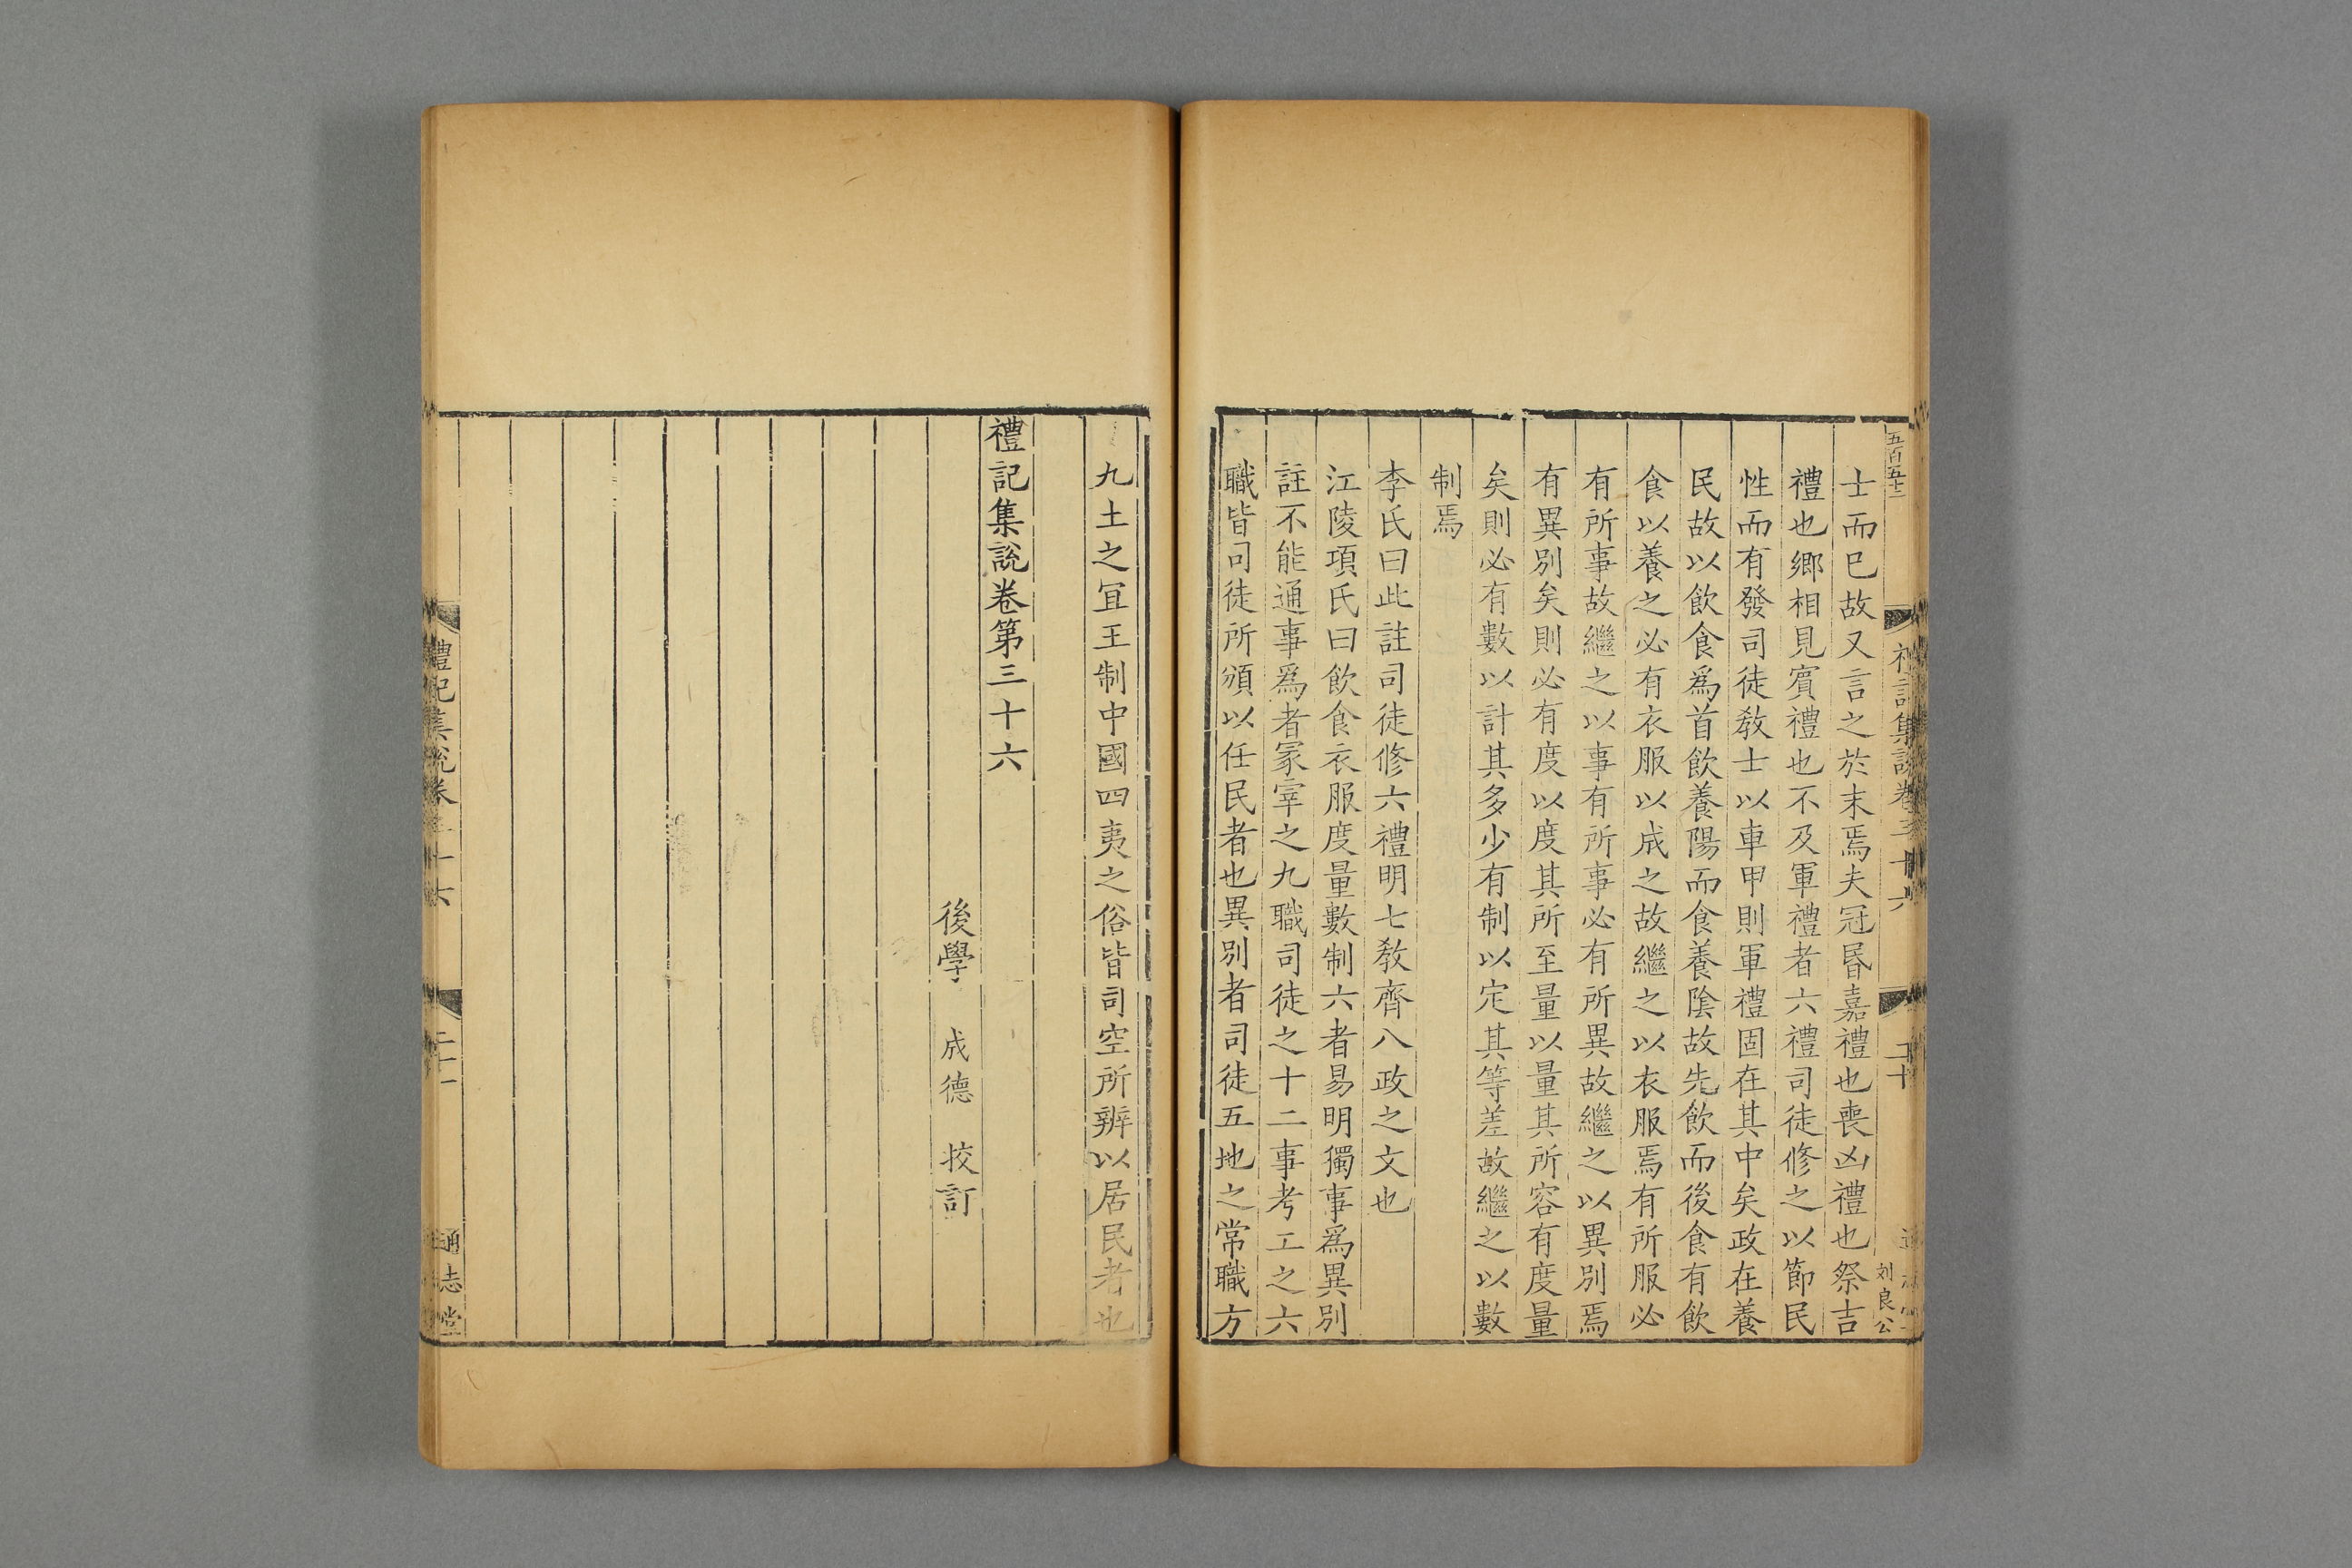 五百五十二
禮記集說卷三十六
二十
刘良公
士而已故又言之於末焉夫冠昏嘉禮也喪凶禮也祭吉
禮也鄉相見賓禮也不及軍禮者六禮司徒修之以節民
性而有發司徒敎士以車甲則軍禮固在其中矣政在養
民故以飲食爲首飲養陽而食養陰故先飲而後食有飲
食以養之必有衣服以成之故繼之以衣服焉有所服必
有所事故繼之以事有所事必有所異故繼之以異別焉
有異別矣則必有度以度其所至量以量其所容有度量
矣則必有數以計其多少有制以定其等差故繼之以數
制焉
李氏曰此註司徒修六禮明七敎齊八政之文也
江陵項氏曰飲食衣服度量數制六者易明獨事爲異別
註不能通事爲者冢宰之九職司徒之十二事考工之六
職皆司徒所頒以任民者也異別者司徒五地之常職方
九土之宜王制中國四夷之俗皆司空所辨以居民者也
禮記集說卷第三十六
後學 成德 挍訂
禮記集說卷三十六
二十一
通志堂